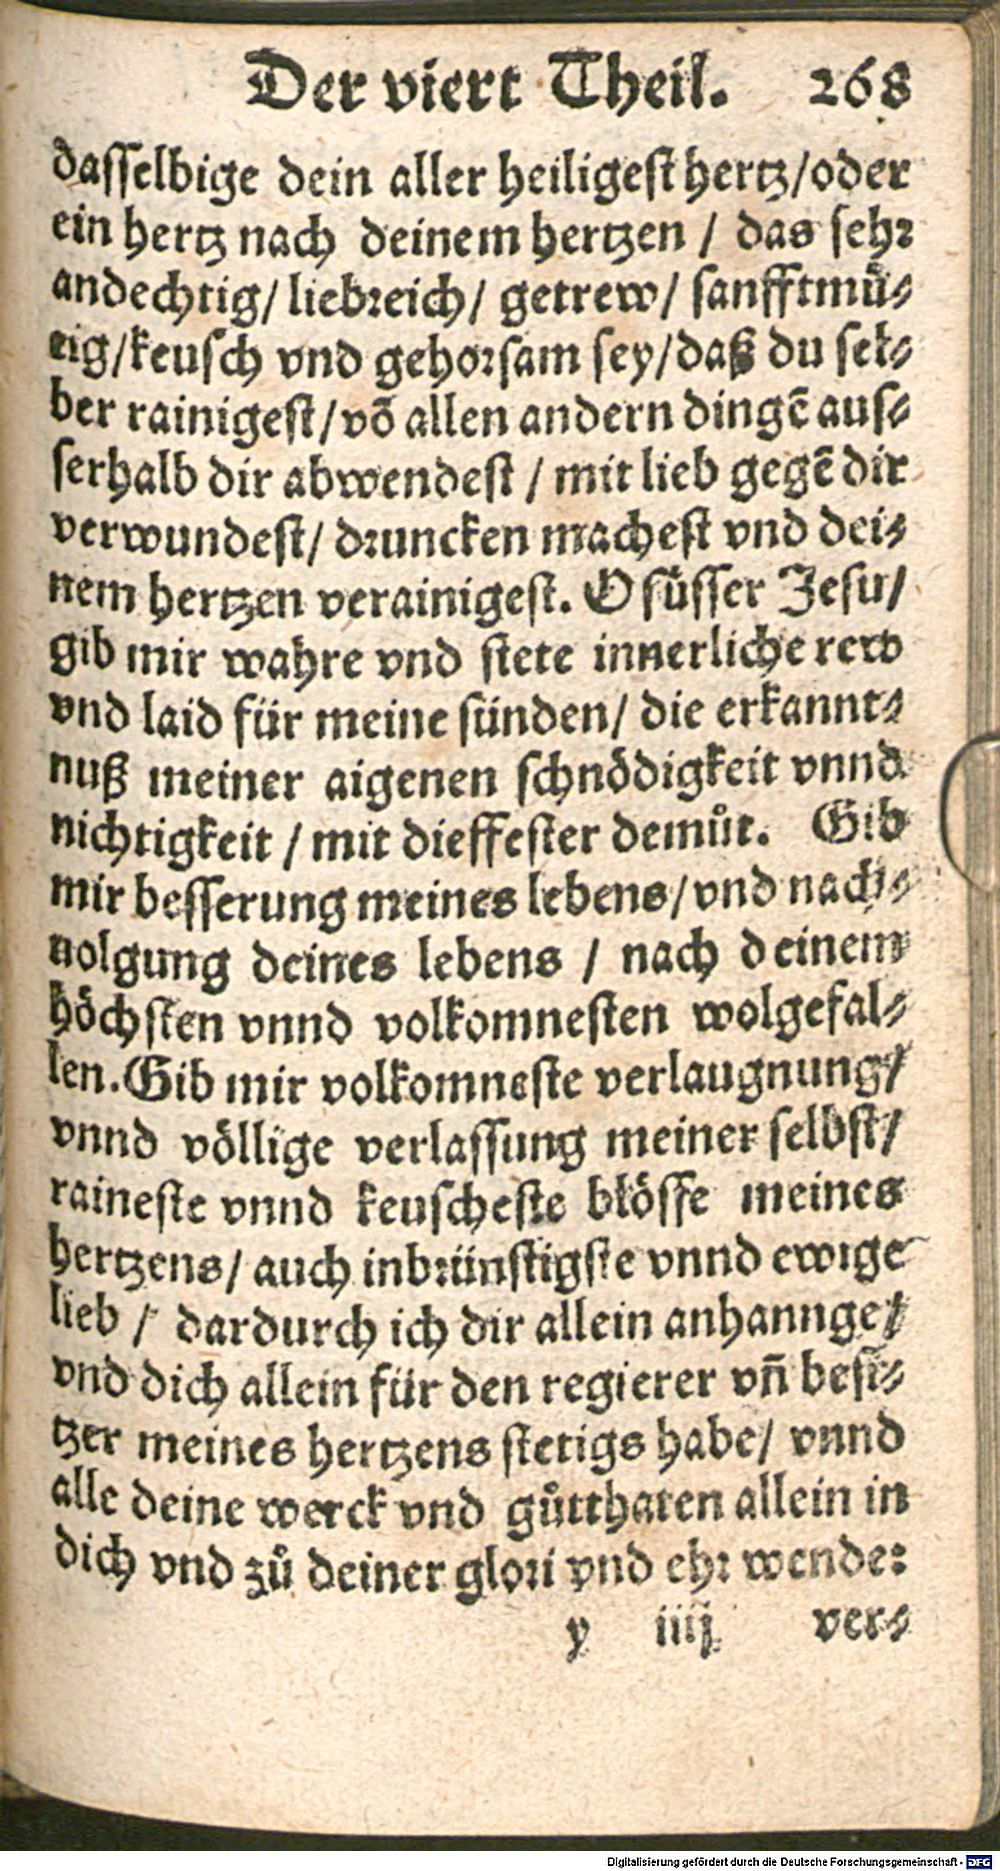 Der viert Theil. 268
dasselbige dein aller heiligest hertz/oder
ein hertz nach deinem hertzen / das sehr
andechtig/ liebreich/ getrew/ sanfftmuͤ-
tig/keusch vnd gehorsam sey/daß du sel-
ber rainigest/võ allen andern dingẽ aus-
serhalb dir abwendest / mit lieb gegẽ dir
verwundest/ druncken machest vnd dei-
nem hertzen verainigest. O suͤsser Jesu/
gib mir wahre vnd stete innerliche rew
vnd laid für meine sünden/ die erkannt-
nuß meiner aigenen schnoͤdigkeit vnnd
nichtigkeit / mit dieffester demuͦt. Gib
mir besserung meines lebens/vnd nach-
uolgung deines lebens / nach deinem
hoͤchsten vnnd volkomnesten wolgefal-
len. Gib mir volkomneste verlaugnung/
vnnd voͤllige verlassung meiner selbst/
raineste vnnd keuscheste bloͤsse meines
hertzens/ auch inbrünstigste vnnd ewige
lieb / dardurch ich dir allein anhannge/
vnd dich allein für den regierer vñ besi-
tzer meines hertzens stetigs habe/ vnnd
alle deine werck vnd guͦtthaten allein in
dich vnd zuͦ deiner glori vnd ehr wende:
y iiij ver-
Digitalisierung gefördert durch die Deutsche Forschungsgemeinschaft - DFG